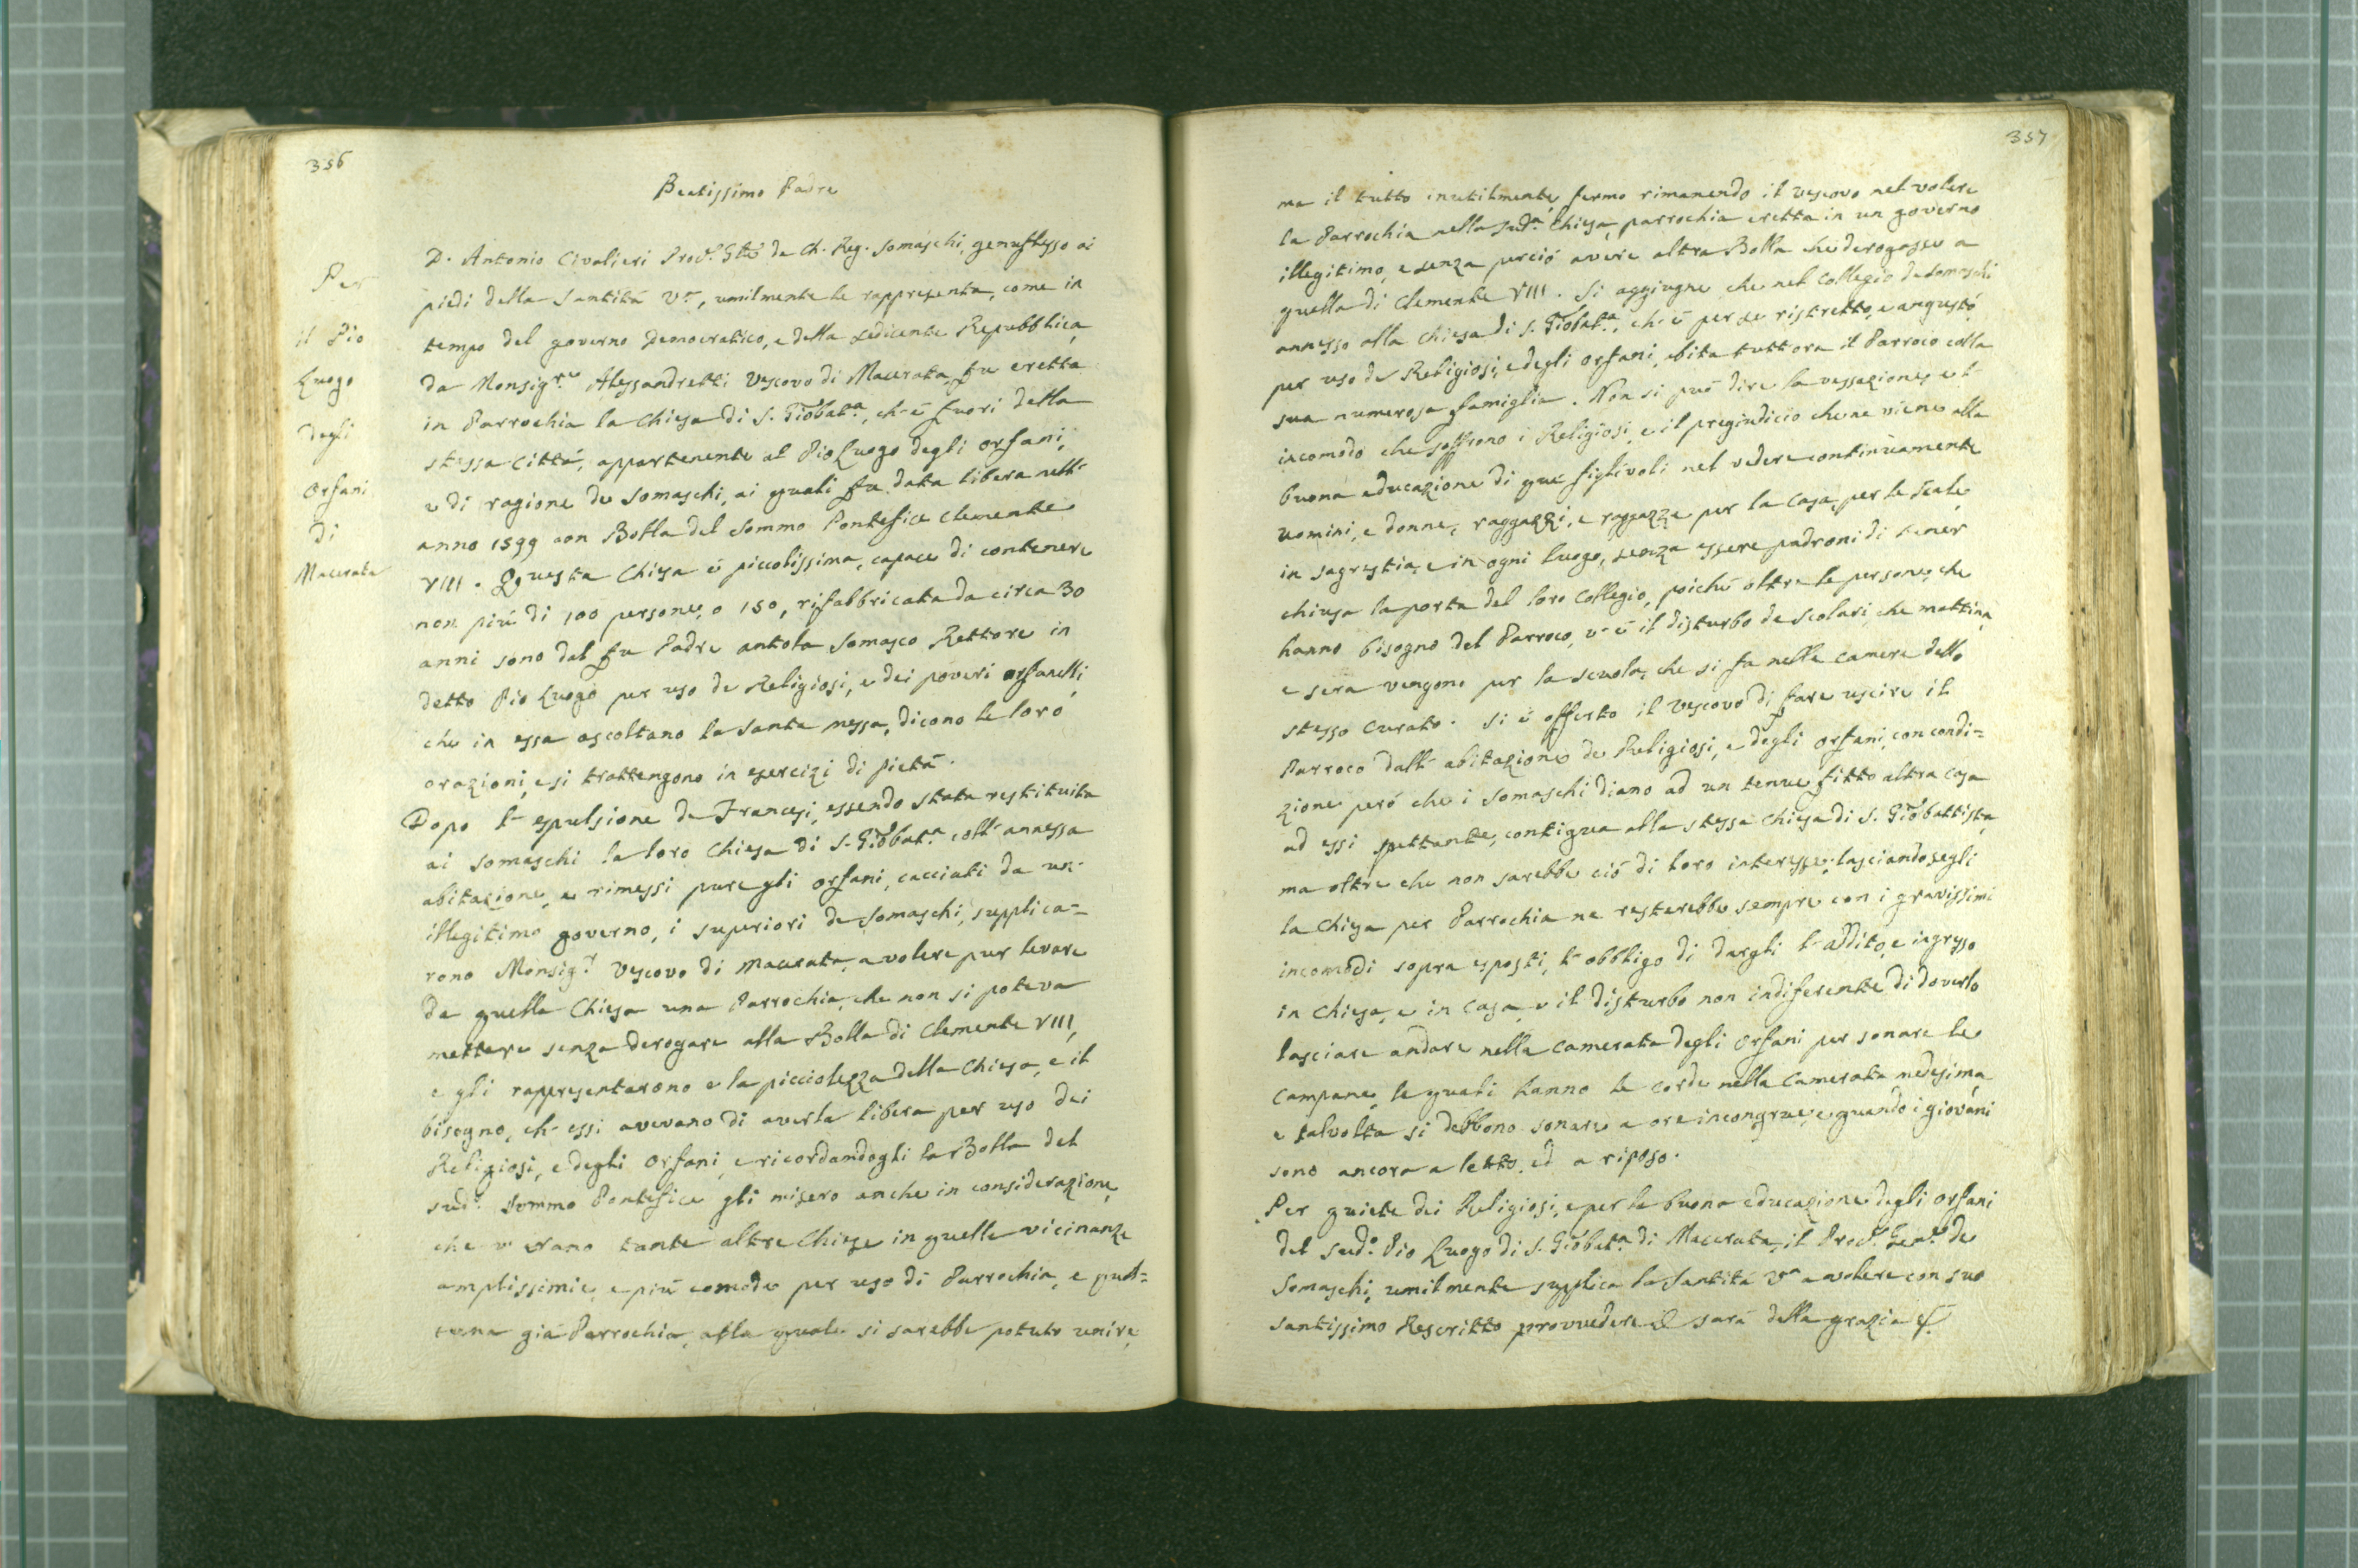 356
Beatissimo Padre
Per
il Pio
Luogo
degli
Orfani
di
Macerata
D. Antonio Civalieri Proc.r Gñle de Ch. Reg. Somaschi, genuflesso ai
piedi della Santità V.ra, umilmente le rappresenta, come in
tempo del governo Democratico, e della sedicente Repubblica,
da Monsig.re Alessandretti Vescovo di Macerata, fu eretta
in Parrochia la Chiesa di S. Giobat.a, ch'è fuori della
stessa Città, appartenente al Pio Luogo degli orfani,
e di ragione de Somaschi, ai quali fu data libera nell'
anno 1599 con Bolla del Sommo Pontefice Clemente
VIII. Questa Chiesa è piccolissima, capace di contenere
non più di 100 persone, o 150, rifabbricata da circa 30
anni sono dal fu Padre Antola Somasco Rettore in
detto Pio Luogo per uso de Religiosi, e dei poveri orfanelli,
che in essa ascoltano la Santa messa, dicono le loro
orazioni, e si trattengono in esercizi di pietà.
Dopo l'espulsione de Francesi, essendo stata restituita
ai Somaschi la loro Chiesa di S. Giobat.a coll'annessa
abitazione, e rimessi pure gli orfani, cacciati da un
illegitimo governo, i superiori de Somaschi, supplica=
rono Monsig.r Vescovo di Macerata, a volere pur levare
da quella Chiesa una Parrochia, che non si poteva
mettere senza derogare alla Bolla di Clemente VIII,
e gli rappresentarono e la picciolezza della Chiesa, e il
bisogno, ch'essi avevano di averla libera per uso dei
Religiosi, e degli Orfani, e ricordandogli la Bolla del
sud.o Sommo Pontefice gli misero anche in considerazione,
che v'erano tante altre Chiese in quelle vicinanze
amplissime, e più comode per uso di Parrochia, e
già Parrochia, alla quale si sarebbe potuto unire,
357
ma il tutto inutilmente, fermo rimanendo il Vescovo nel volere
la Parrochia nella sud.a Chiesa, parrochia eretta in un governo
illegitimo, e senza perciò avere altra Bolla che derogasse a
quella di Clemente VIII. Si aggiugne che nel Collegio de Somaschi
annesso alla Chiesa di S. Giobat.a, ch'è per se ristretto, e angusto
per uso de Religiosi, e degli orfani, abita tuttora il Parroco colla
sua numerosa famiglia. Non si può dire la vessazione, e l'
incomodo che soffrono i Religiosi, e il pregiudicio che ne viene alla
buona educazione di que' figlivoli nel vedere continuamente
uomini, e donne, raggazzi, e raggazze per la casa, per le scale,
in sagrestia, e in ogni luogo, senza essere padroni di tener
chiusa la porta del loro Collegio, poichè oltre le persone, che
hanno bisogno del Parroco, v'è il disturbo de scolari, che mattina,
e sera vengono per la scuola, che si fa nelle camere dello
stesso Curato. Si è offerto il Vescovo di fare uscire il
Parroco dall'abitazione de Religiosi, e degli orfani, con condi=
zione però che i Somaschi diano ad un tenue fitto altra casa
ad essi spettante, contigua alla stessa Chiesa di S. Giobattista,
ma oltre che non sarebbe ciò di loro interesse, lasciandosegli
la Chiesa per Parrochia ne resterebbe sempre con i gravissimi
incomodi sopra esposti, l'obbligo di dargli l'addito, e ingresso
in Chiesa, e in Casa, e il disturbo non indiferente di doverlo
lasciare andare nella camerata degli Orfani per sonare le
Campane, le quali hanno le corde nella Camerata medesima
e talvolta si debbono sonare a ore incongrue, e quando i giovani
sono ancora a letto, ed a riposo.
Per quiete dei Religiosi, e per la buona educazione degli Orfani
del sud.o Pio Luogo di S. Giobat.a di Macerata, il Proc.r Gen.le de
Somaschi, umilmente supplica la Santità V.ra a volere con suo
santissimo Rescritto provvedere e sarà della grazia &.